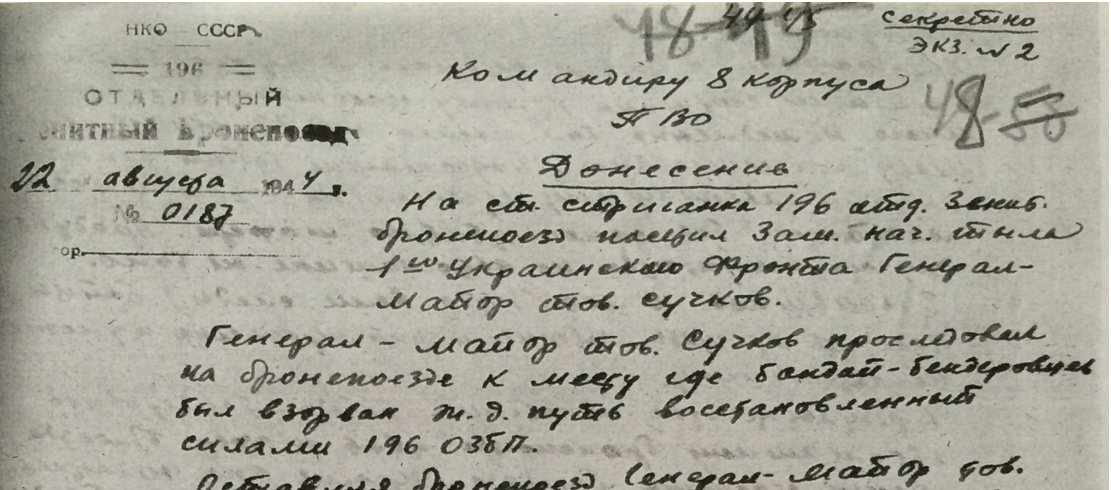 НКО СССР
196
ОТДЕЛЬНЫЙ
енитный бронепоезд
22 августа 1944 г.
№ 0187
ор.
Секретно
экз. № 2
48-50
Командиру 8 корпуса
ПВО
Донесение
На ст. стриганка 196 отд. Зенит.
бронепоезд посетил Зам. нач. тыла
1го Украинского Фронта Генерал-
Майор тов. Сучков.
Генерал-Майор тов. Сучков проследовал
на бронепоезде к месту где бандой-бендеровцев
был взорван ж.д. путь восстановленный
силами 196 ОЗБП.
Оставляя бронепоезд Генерал-Майор тов.